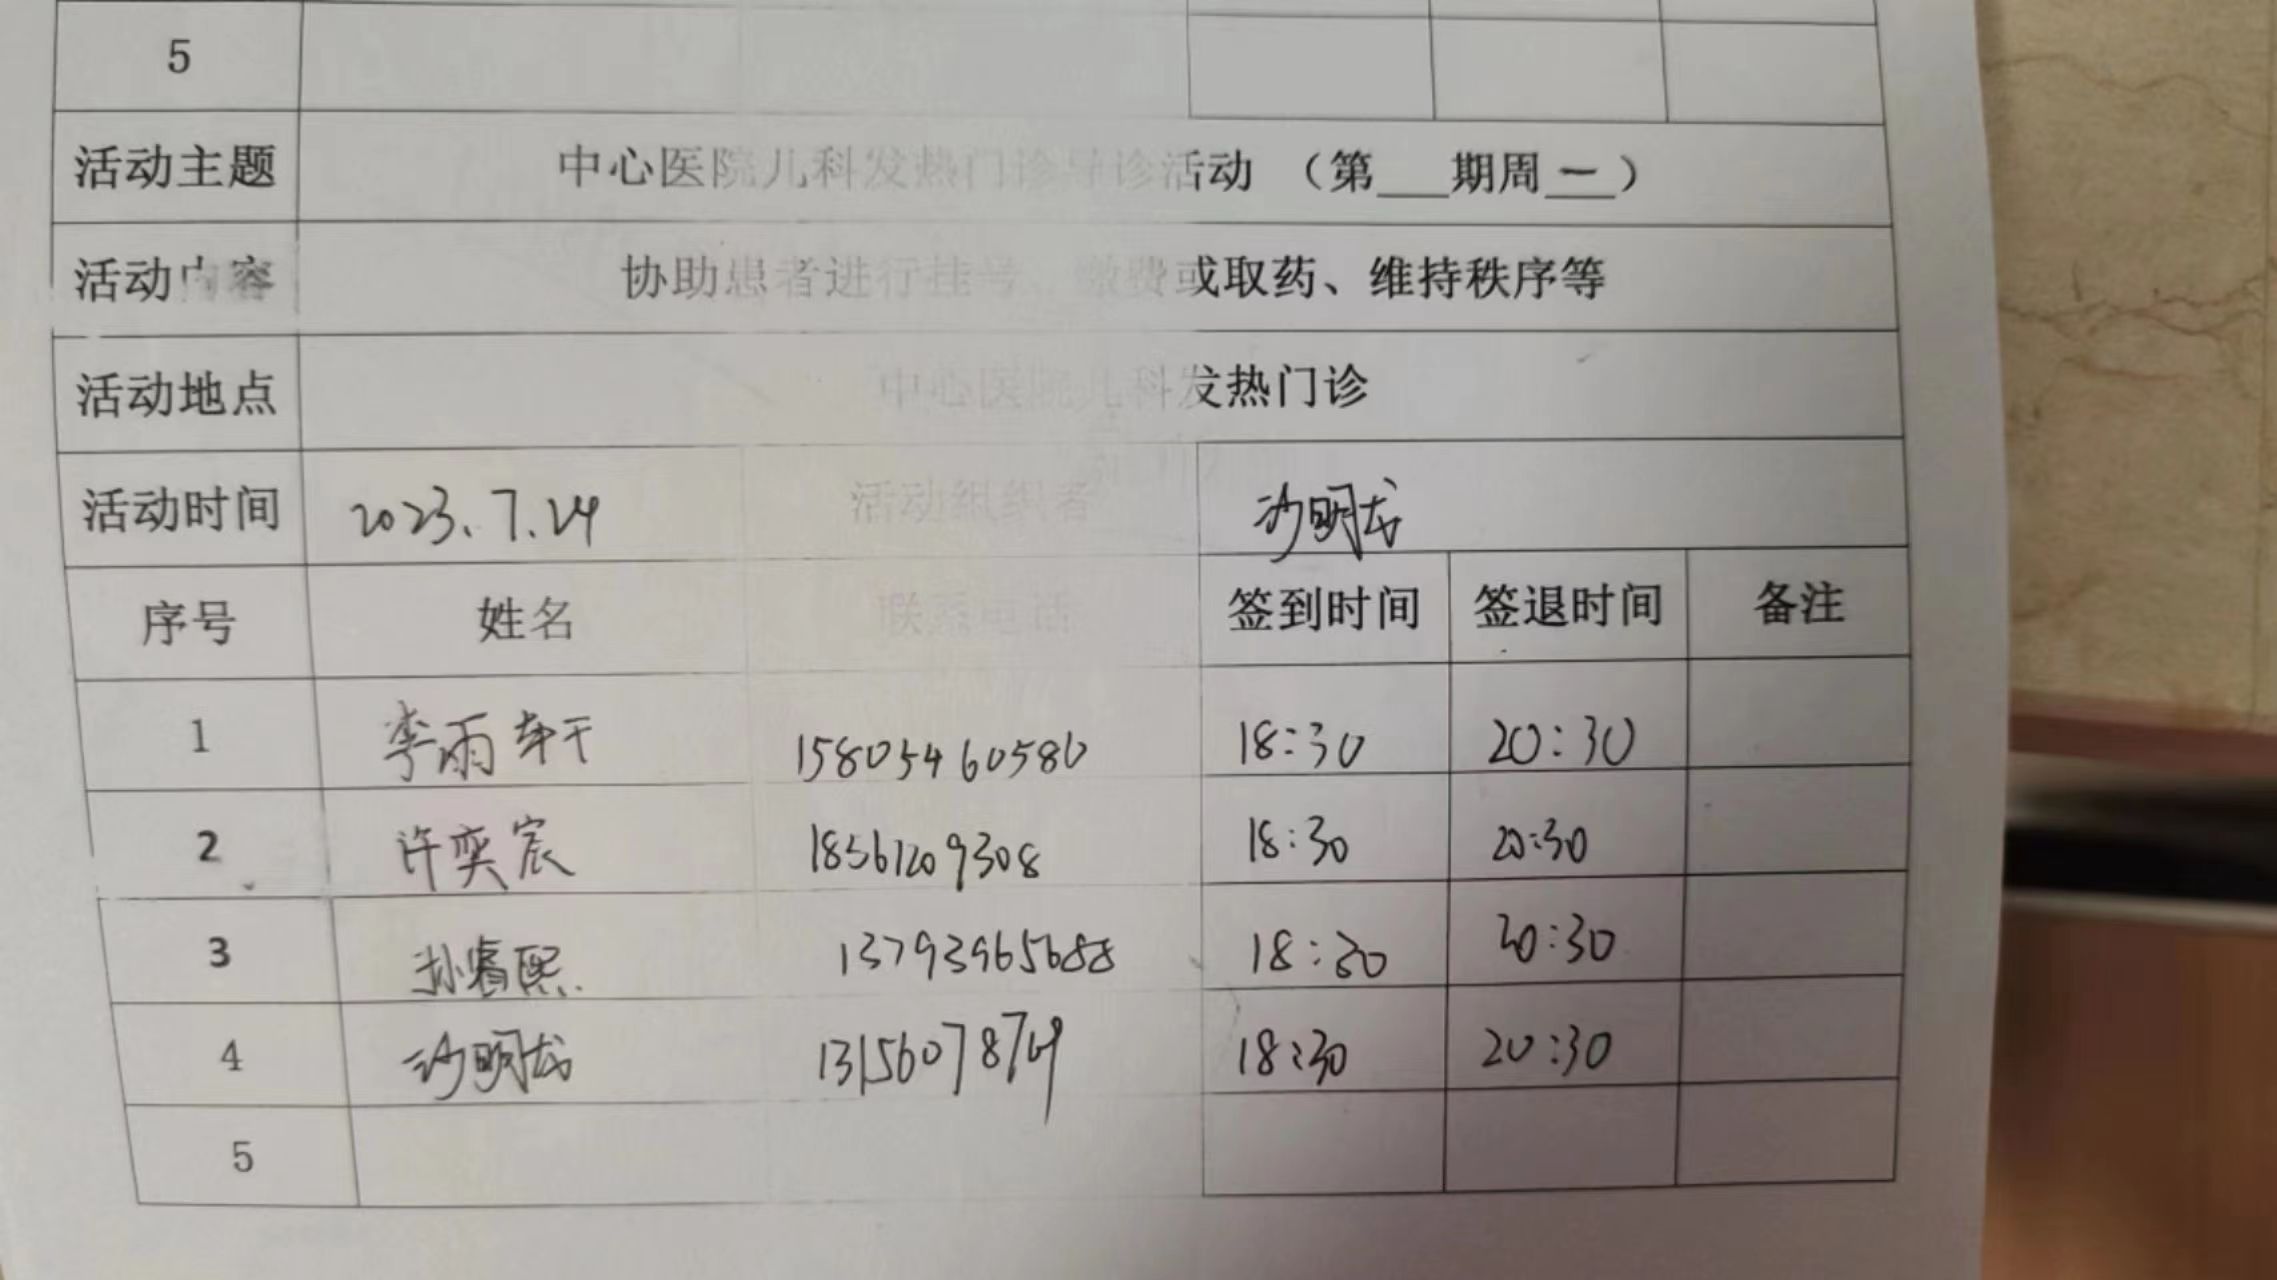 5
活动主题 中心医院儿科发热门诊导诊活动 （第___期周一）
活动内容 协助患者进行挂号、缴费或取药、维持秩序等
活动地点 中心医院儿科发热门诊
活动时间 2023.7.24 活动组织者 沙明龙
序号 姓名 联系电话 签到时间 签退时间 备注
1 李雨轩 15805460580 18:30 20:30
2 许奕宸 18561209308 18:30 20:30
3 孙睿熙 13793965688 18:30 20:30
4 沙明龙 18:30 20:30
5